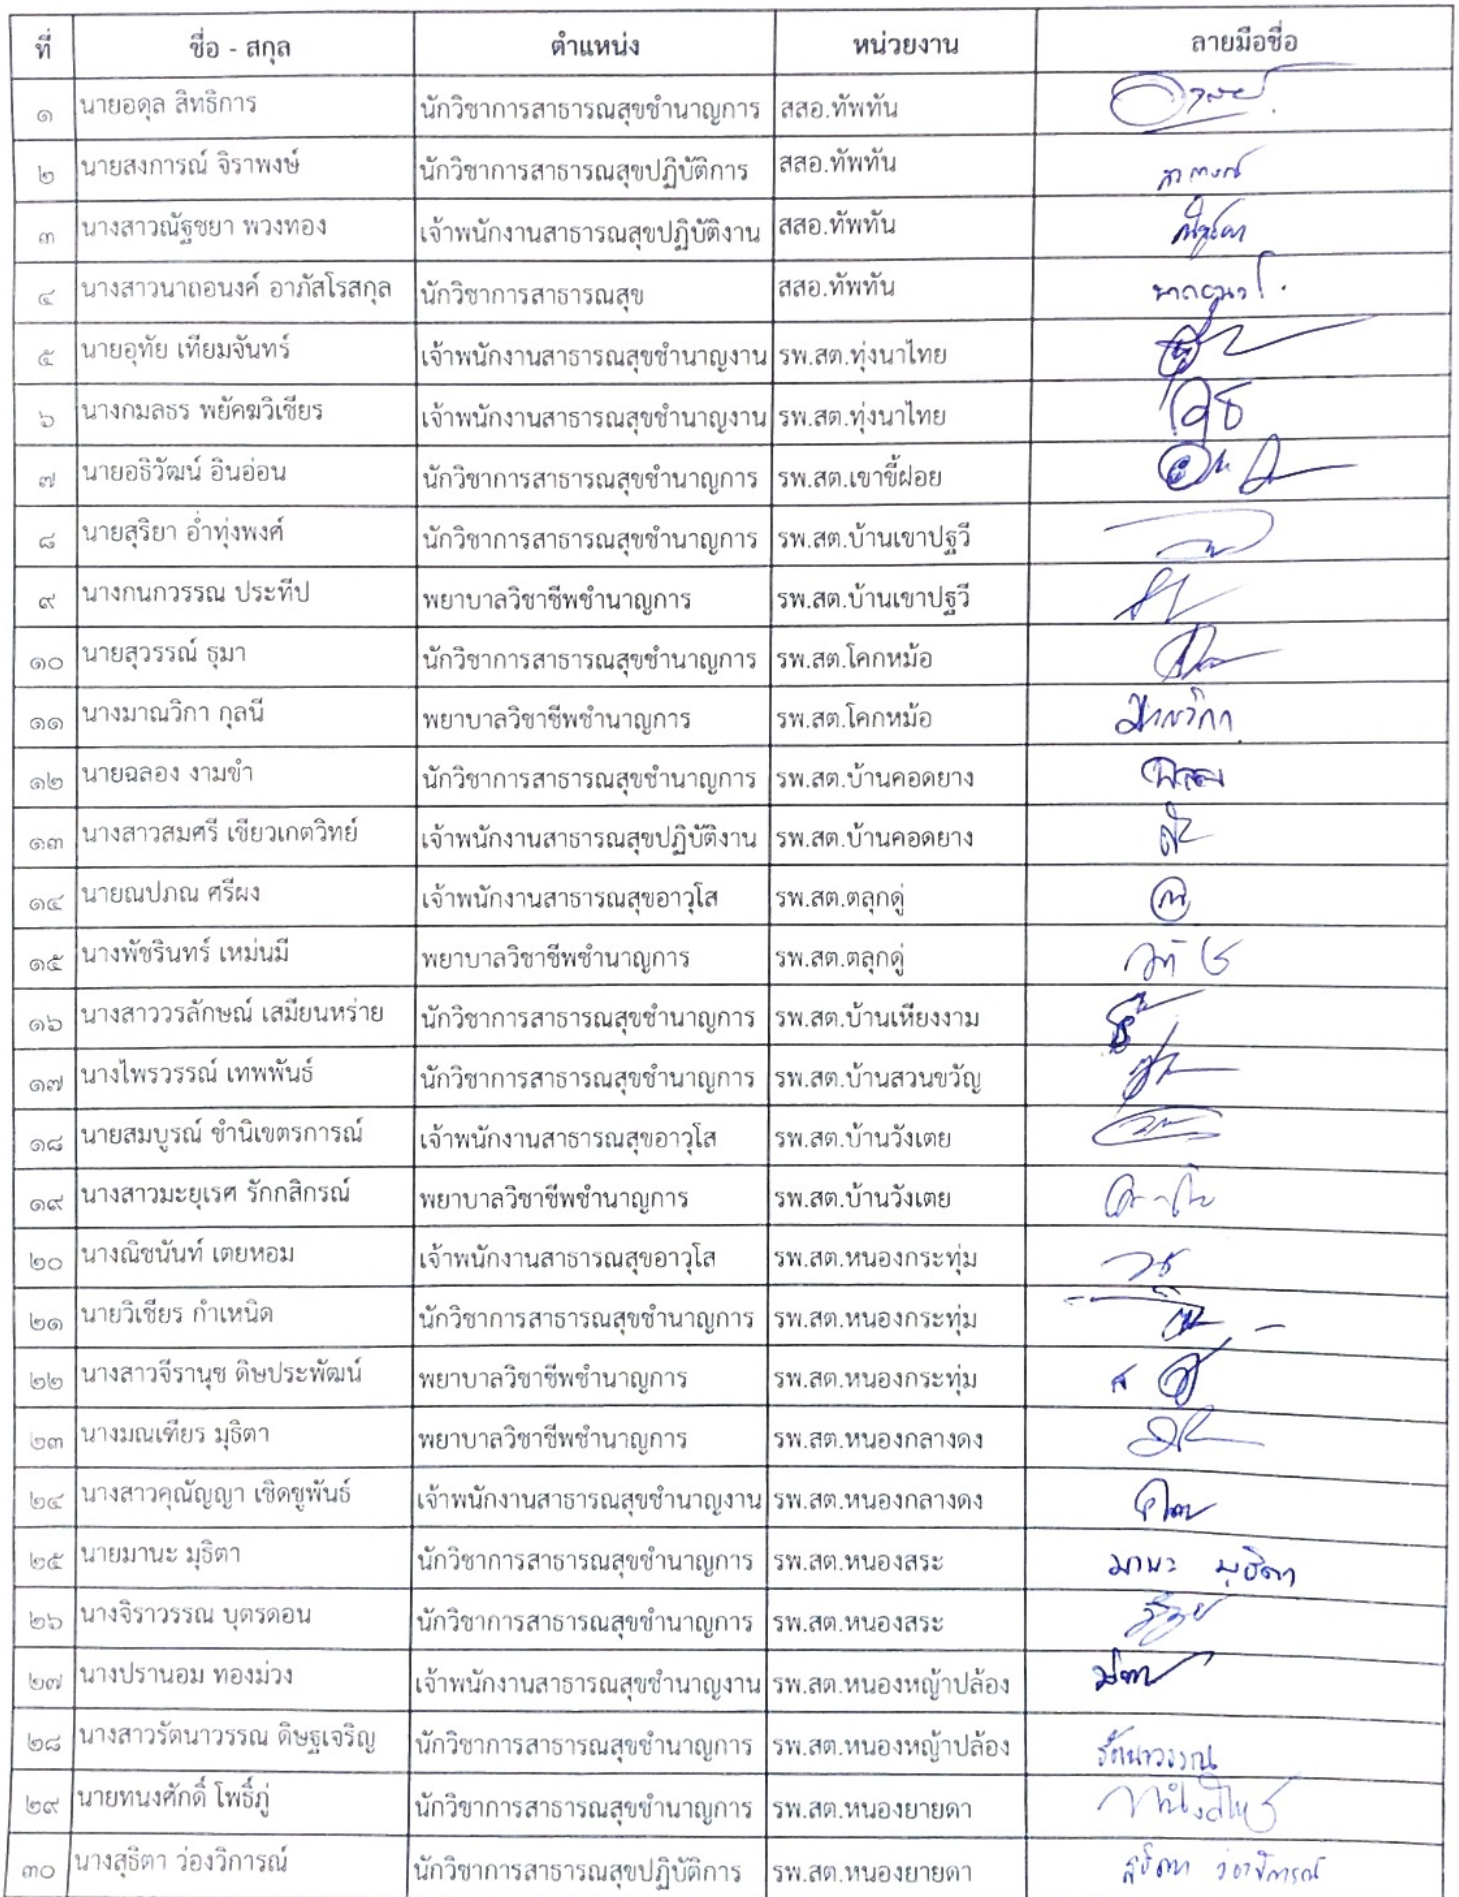 ที่ ชื่อ - สกุล ตำแหน่ง หน่วยงาน ลายมือชื่อ
๑ นายอดุล สิทธิการ นักวิชาการสาธารณสุขชำนาญการ สสอ.ทัพทัน
๒ นายสงการณ์ จิราพงษ์ นักวิชาการสาธารณสุขปฏิบัติการ สสอ.ทัพทัน
๓ นางสาวณัฐชยา พวงทอง เจ้าพนักงานสาธารณสุขปฏิบัติงาน สสอ.ทัพทัน
๔ นางสาวนาถอนงค์ อาภัสโรสกุล นักวิชาการสาธารณสุข สสอ.ทัพทัน
๕ นายอุทัย เทียมจันทร์ เจ้าพนักงานสาธารณสุขชำนาญงาน รพ.สต.ทุ่งนาไทย
๖ นางกมลธร พยัคฆวิเชียร เจ้าพนักงานสาธารณสุขชำนาญงาน รพ.สต.ทุ่งนาไทย
๗ นายอธิวัฒน์ อินอ่อน นักวิชาการสาธารณสุขชำนาญการ รพ.สต.เขาขี้ฝอย
๘ นายสุริยา อ่ำทุ่งพงศ์ นักวิชาการสาธารณสุขชำนาญการ รพ.สต.บ้านเขาปฐวี
๙ นางกนกวรรณ ประทีป พยาบาลวิชาชีพชำนาญการ รพ.สต.บ้านเขาปฐวี
๑๐ นายสุวรรณ์ ธุมา นักวิชาการสาธารณสุขชำนาญการ รพ.สต.โคกหม้อ
๑๑ นางมาณวิกา กุลนี พยาบาลวิชาชีพชำนาญการ รพ.สต.โคกหม้อ มาณวิกา
๑๒ นายฉลอง งามขำ นักวิชาการสาธารณสุขชำนาญการ รพ.สต.บ้านคอดยาง
๑๓ นางสาวสมศรี เขียวเกตวิทย์ เจ้าพนักงานสาธารณสุขปฏิบัติงาน รพ.สต.บ้านคอดยาง
๑๔ นายณปภณ ศรีผง เจ้าพนักงานสาธารณสุขอาวุโส รพ.สต.ตลุกดู่
๑๕ นางพัชรินทร์ เหม่นมี พยาบาลวิชาชีพชำนาญการ รพ.สต.ตลุกดู่
๑๖ นางสาววรลักษณ์ เสมียนหร่าย นักวิชาการสาธารณสุขชำนาญการ รพ.สต.บ้านเหียงงาม
๑๗ นางไพรวรรณ์ เทพพันธ์ นักวิชาการสาธารณสุขชำนาญการ รพ.สต.บ้านสวนขวัญ
๑๘ นายสมบูรณ์ ชำนิเขตรการณ์ เจ้าพนักงานสาธารณสุขอาวุโส รพ.สต.บ้านวังเตย
๑๙ นางสาวมะยุเรศ รักกสิกรณ์ พยาบาลวิชาชีพชำนาญการ รพ.สต.บ้านวังเตย
๒๐ นางณิชนันท์ เตยหอม เจ้าพนักงานสาธารณสุขอาวุโส รพ.สต.หนองกระทุ่ม
๒๑ นายวิเชียร กำเหนิด นักวิชาการสาธารณสุขชำนาญการ รพ.สต.หนองกระทุ่ม
๒๒ นางสาวจีรานุช ดิษประพัฒน์ พยาบาลวิชาชีพชำนาญการ รพ.สต.หนองกระทุ่ม
๒๓ นางมณเฑียร มุธิตา พยาบาลวิชาชีพชำนาญการ รพ.สต.หนองกลางดง
๒๔ นางสาวคุณัญญา เชิดชูพันธ์ เจ้าพนักงานสาธารณสุขชำนาญงาน รพ.สต.หนองกลางดง
๒๕ นายมานะ มุธิตา นักวิชาการสาธารณสุขชำนาญการ รพ.สต.หนองสระ มานะ มุธิตา
๒๖ นางจิราวรรณ บุตรดอน นักวิชาการสาธารณสุขชำนาญการ รพ.สต.หนองสระ
๒๗ นางปรานอม ทองม่วง เจ้าพนักงานสาธารณสุขชำนาญงาน รพ.สต.หนองหญ้าปล้อง
๒๘ นางสาวรัตนาวรรณ ดิษฐเจริญ นักวิชาการสาธารณสุขชำนาญการ รพ.สต.หนองหญ้าปล้อง รัตนาวรรณ
๒๙ นายทนงศักดิ์ โพธิ์ภู่ นักวิชาการสาธารณสุขชำนาญการ รพ.สต.หนองยายดา
๓๐ นางสุธิตา ว่องวิการณ์ นักวิชาการสาธารณสุขปฏิบัติการ รพ.สต.หนองยายดา สุธิตา ว่องวิการณ์